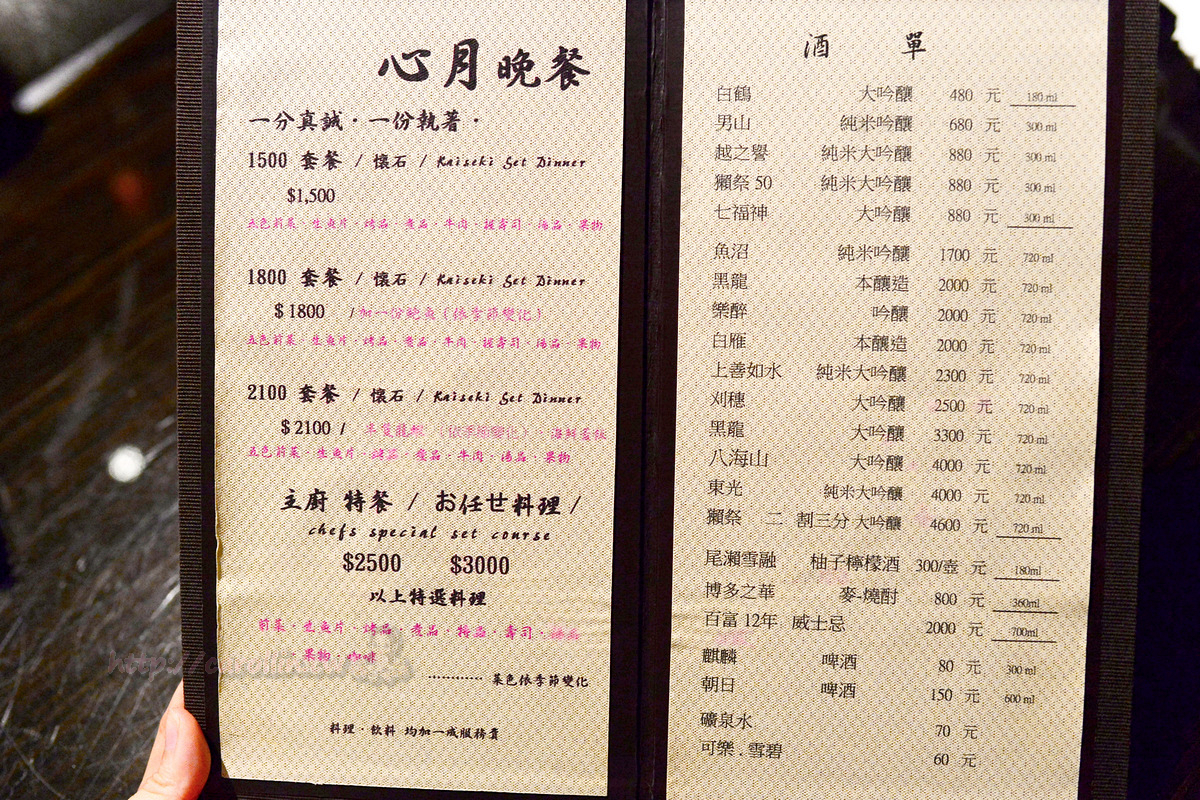 心月晚餐
一分真誠・一份執著・
1500 套餐 / 懷石 / Kaiseki Set Dinner
$1,500
五色前菜・生魚片・烤品・煮品・牛肉・握壽司・湯品・果物
1800 套餐 / 懷石 / Kaiseki Set Dinner
$ 1800 /加一份鮑魚(依季節變化)
五色前菜・生魚片・烤品・煮品・牛肉・握壽司・湯品・果物
2100 套餐 / 懷石 / Kaiseki Set Dinner
$ 2100 / 半隻龍蝦 (依季節變化)
五色前菜・生魚片・烤品・煮品・牛肉・湯品・果物
主廚 特餐 / お任せ料理 /
chefs special set course
$2500 $3000
以上特選料理
前菜・生魚片・烤品・煮品・揚品・壽司・湯品
・果物・咖啡
·········· 菜色依季節變化
料理・飲料 均加一成服務費
酒 單
白鶴 大吟釀 480 元 180 ml
男山 純米吟釀 680 元 300 ml
越之譽 純米大吟釀 880 元 300 ml
獺祭 50 純米大吟釀 880 元 300 ml
七福神 大吟釀 880 元 300 ml
魚沼 純米吟釀 1700 元 720 ml
黑龍 本釀造 2000 元 720 ml
樂醉 吟釀 2000 元 720 ml
白雁 本釀造 2000 元 720 ml
上善如水 純米大吟釀 2300 元 720 ml
刈穗 大吟釀 2500 元 720 ml
黑龍 大吟釀 3300 元 720 ml
八海山 大吟釀 4000 元 720 ml
東光 純米大吟釀 4000 元 720 ml
獺祭 二 割三分 大吟釀 4600 元 720 ml
尾瀨雪融 柚子檸檬酒 300/壺 元 180ml
博多之華 麥-燒酎 800 元 360ml
百富 12年 威士忌 2000 元 700ml
麒麟 啤酒 80 元 300 ml
朝日 啤酒 150 元 600 ml
礦泉水 70 元
可樂 . 雪碧 60 元